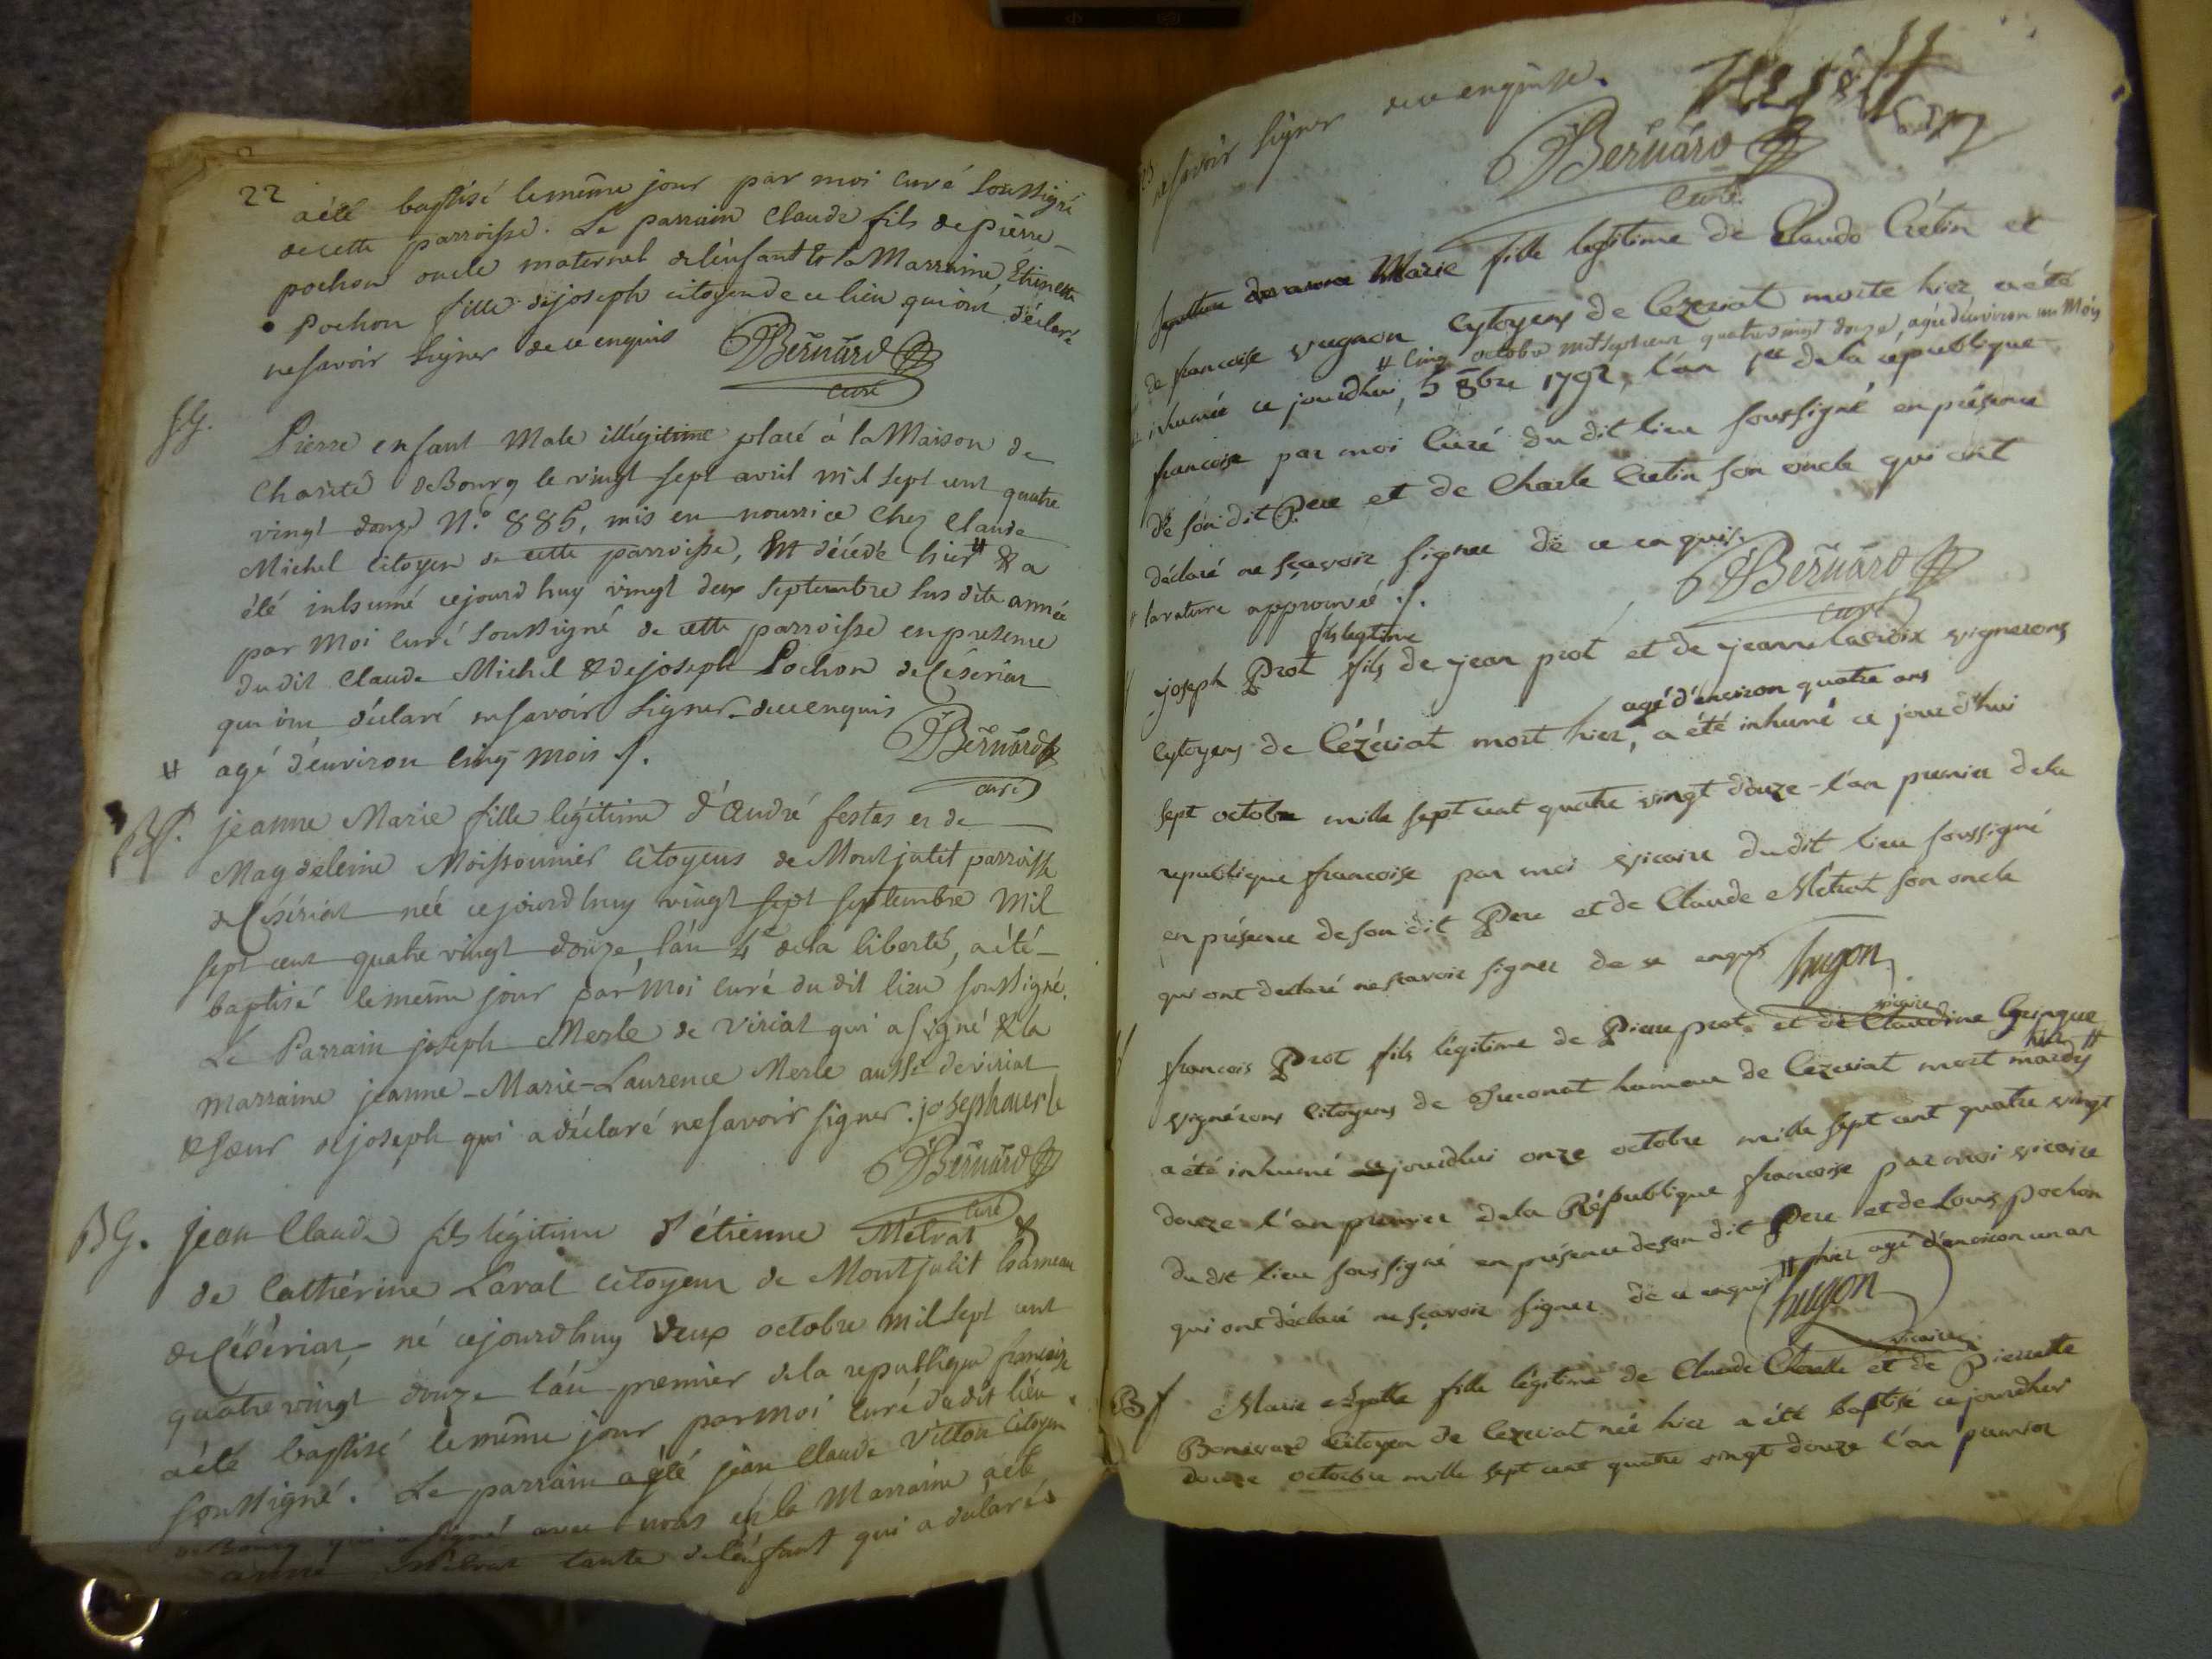 22
a été baptisé le même jour par moi curé soussigné
de cette parroisse. Le parrain Claude fils de pierre
pochon oncle maternel de l'enfant & la Marraine Etiennette
Pochon fille de joseph citoyen de ce lieu qui ont déclaré
ne savoir signer de ce enquis
Bernard
curé
SG.
Pierre enfant Male illégitime placé à la Maison de
Charité de Bourg le vingt sept avril mil sept cent quatre
vingt douze N.o 885, mis en nourrice Chez Claude
Michel Citoyen de cette parroisse, est décédé hier # & a
été inhumé cejourd'huy vingt deux septembre sus dite année
par Moi curé soussigné de cette parroisse en presence
du dit Claude Michel & de joseph Pochon de Céseriat
qui ont déclaré ne savoir signer de ce enquis
Bernard
curé
# agé d'environ cinq mois ./.
Bf.
jeanne Marie fille légitime d'André festas et de
Magdeleine Moissonnier Citoyens de Montjulit parroisse
de Céseriat née cejourd'huy vingt sept septembre Mil
sept cent quatre vingt douze, l'an 4e de la liberté, a été
baptisé le même jour par Moi curé du dit lieu soussigné.
Le Parrain joseph Merle de Viriat qui a signé & la
marraine jeanne-Marie-Laurence Merle aussi de viriat
& sœur de joseph qui a déclaré ne savoir signer. joseph merle
Bernard
curé
BG.
jean Claude fils légitime d'étienne Métrat &
de Cathérine Laval Citoyens de Montjulit hameau
de Cézériat, né cejourd'huy deux octobre mil sept cent
quatre vingt douze l'an premier de la republique francoise
a été baptisé le même jour par moi curé du dit lieu
soussigné. Le parrain a été jean Claude Vitton citoyen
de Bourg qui a signé avec nous et la Marraine a été
Métrat tante de l'enfant qui a declaré
ne savoir signer de ce enquise.
Bernard
curé
sepulture Marie fille legitime de Claude Crétin et
de francoise vugnon Cytoyens de Cézeriat morte hier a été
# cinq octobre mil sept cent quatre vingt douze, agée d'environ un Mois
inhumée ce jourdhui, 5 8bre 1792, l'an 1er de la république
francoise par moi Curé du dit lieu soussigné en présence
de son dit Pere et de Charle Cretin son oncle qui ont
déclaré ne sçavoir signer de ce enquis.
# rature approuvée ./.
Bernard
curé
fils legitime
joseph Prot fils de jean prot et de jeanne lacroix vignerons
agé d'environ quatre ans
Cytoyens de Cézériat mort hier, a été inhumé ce jourd'hui
sept octobre mille sept cent quatre vingt douze l'an premier de la
republique francoise par moi vicaire du dit lieu soussigné
en présence de son dit Pere et de Claude Métrat son oncle
qui ont declaré ne scavoir signer de ce enquis
hugon
vicaire
francois Prot fils légitime de Pierre prot et de Claudine Guingue
hier #
vignérons Citoyens de hameau de Cezeriat mort mardy
a été inhumé cejourdhui onze octobre mille sept cent quatre vingt
douze l'an premier de la République francoise par moi vicaire
du dit lieu soussigné en présence de son dit Pere et de Louis Pochon
qui ont déclaré ne sçavoir signer de ce enquis # hier agé d'environ un an
hugon
vicaire
Bf
Marie fille légitime de Claude et de Pierrette
Citoyen de Cezeriat née hier a été baptisé cejourdhui
douze octobre mille sept cent quatre vingt douze l'an premier